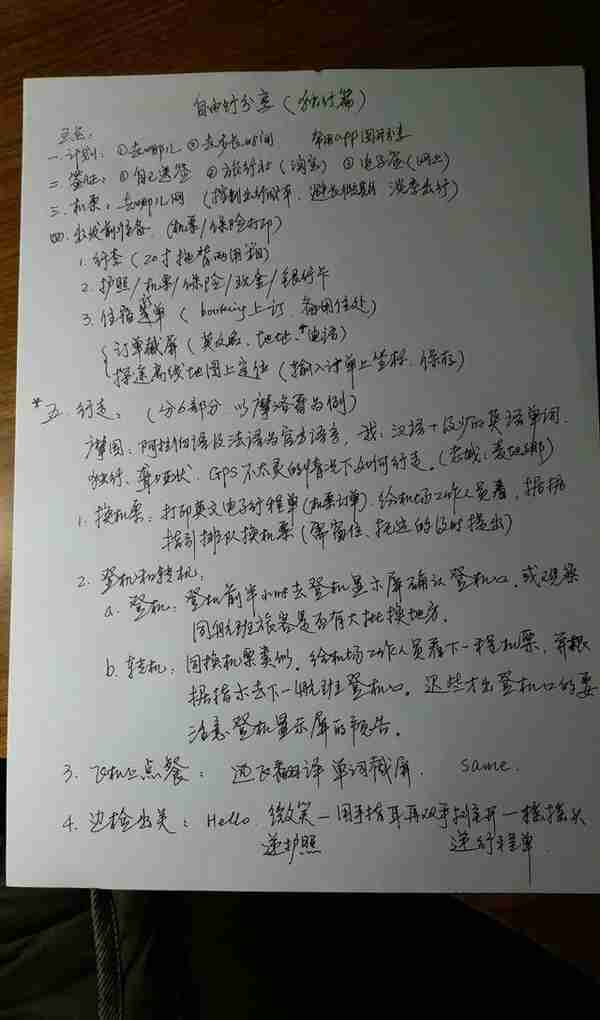 自由行分享（独行篇）
一. 计划：①去哪儿 ②去多长时间 常用app图片分享
二. 签证：①自己送签 ②旅行社（淘宝） ③电子签（网上）
三. 机票：去哪儿网（控制出行时间、淡季出行）
四. 出发前准备（机票/保险打印）
1. 行李（20寸拖背两用箱）
2. 护照/机票/保险/现金/银行卡
3. 住宿单（booking上订、备用住处）
订单截屏（英文名、地址、*电话）
探途离线地图上定位（输入订单上坐标、保存）
*五. 行走：（分6部分 以摩洛哥为例）
摩国：阿拉伯语及法语为官方语言，我：汉语+极少的英语单词.
独行、聋哑状、GPS不太灵的情况下如何行走。
1. 换机票：打印英文电子行程单（机票订单）.给机场工作人员看，据其
指引排队换机票（需留住、托运的及时提出）
2. 登机和转机：
a. 登机：登机前半小时去登机显示屏确认登机口，或观察
同航班旅客是否有大批换地方。
b. 转机：同换机票类似，给机场工作人员看下一程机票，并根
据指示去下一航班登机口。迟些才出登机口的要
注意登机显示屏的预告。
3. 飞机上点餐：翻译单词截屏. same.
4. 边检出关：Hello 微笑—用手指耳再双手摊开—摇摇头
递护照 递行程单